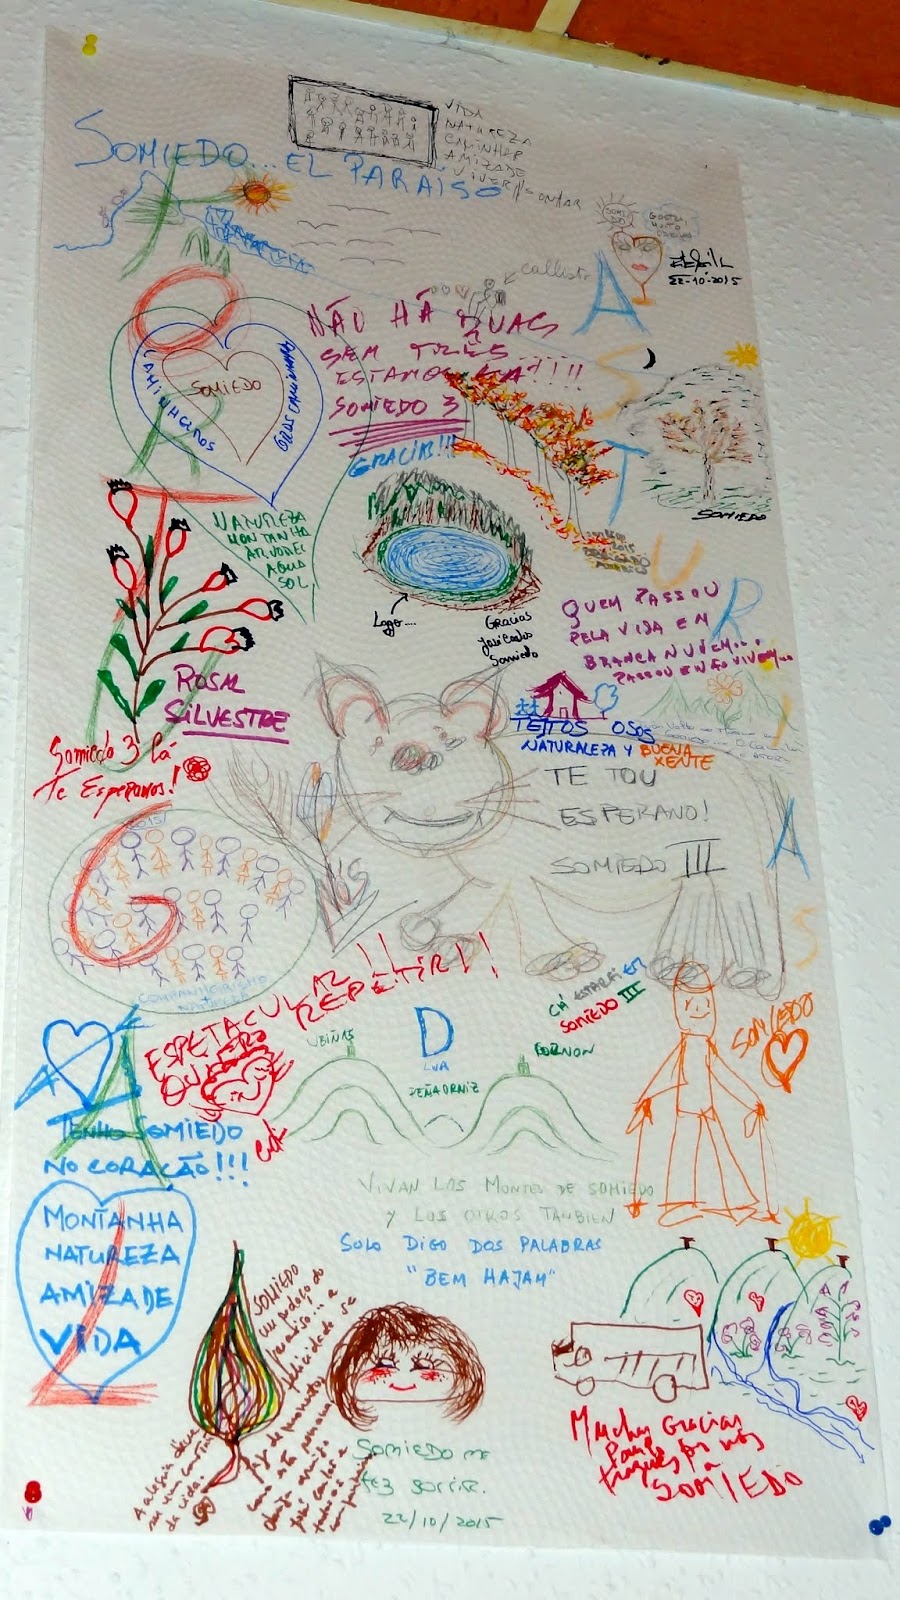 VIDA
NATUREZA
CAMINHAR
AMIZADE
VIVER
SOMIEDO... EL PARAISO
SOMIEDO
GOSTEI
MUITO
22-10-2015
callista
NÃO HÁ DUAS
SEM TRÊS
ESTAMOS LÁ!!!!
SOMIEDO 3
GRACIAS!!!
CAMINHEIROS
SOMIEDO
SOMIEDO
NATUREZA
MONTANHA
ARVORES
AGUA
SOL
Lago....
Gracias
José Carlos
Somiedo
QUEM PASSOU
PELA VIDA EM
BRANCA NUVEM...
PASSOU E NÃO VIVEU...
ROSAL
SILVESTRE
TEITOS OSOS
NATURALEZA Y BUENA
XENTE
Somiedo 3 Lá
Te Esperamos!
TE TOU
ESPERANO!
SOMIEDO III
2015
COMPANHEIRISMO
NATUREZA
ESPETACULAR!!
QUERO REPETIR!!
CÁ ESTAREI EM
SOMIEDO III
UBIÑAS
D
LUA
PEÑAORNIZ
CORNON
SOMIEDO
TENHO SOMIEDO
NO CORAÇÃO!!!
VIVAN LOS MONTES DE SOMIEDO
Y LOS OTROS TAMBIEN
SOLO DIGO DOS PALABRAS
"BEM HAJAM"
MONTANHA
NATUREZA
AMIZADE
VIDA
SOMIEDO
um pedaço do
paraíso... a
felicidade se
faz de momentos
como este
A alegria deve
ser um cartaz
da vida.
SOMIEDO ME
FEZ SORRIR.
22/10/2015
Muchas Gracias
SOMIEDO
A
S
T
U
R
I
A
S
G
R
A